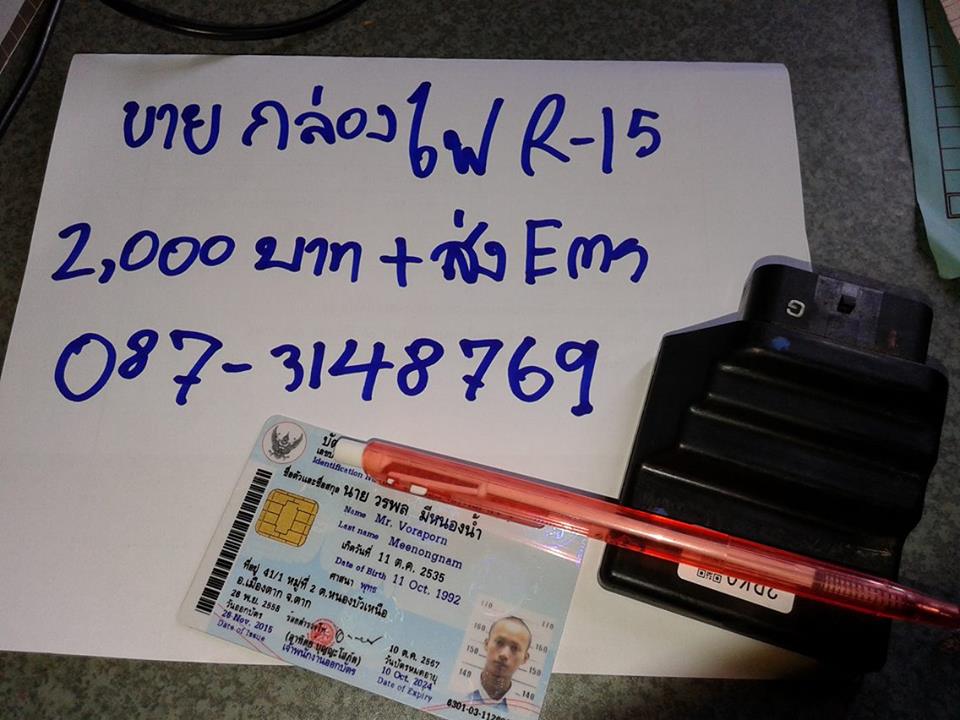 ขาย กล่องไฟ R-15
2,000 บาท + ส่ง Ems
087-3148769
Identification
ชื่อตัวและชื่อสกุล นาย วรพล มีหนองน้ำ
Name Mr. Voraporn
Last name Meenongnam
เกิดวันที่ 11 ต.ค. 2535
Date of Birth 11 Oct. 1992
ศาสนา พุทธ
ที่อยู่ 41/1 หมู่ที่ 2 ต.หนองบัวเหนือ
อ.เมืองตาก จ.ตาก
26 พ.ย. 2558
วันออกบัตร
26 Nov. 2015
Date of Issue
เจ้าพนักงานออกบัตร
10 ต.ค. 2567
วันบัตรหมดอายุ
10 Oct. 2024
Date of Expiry
G